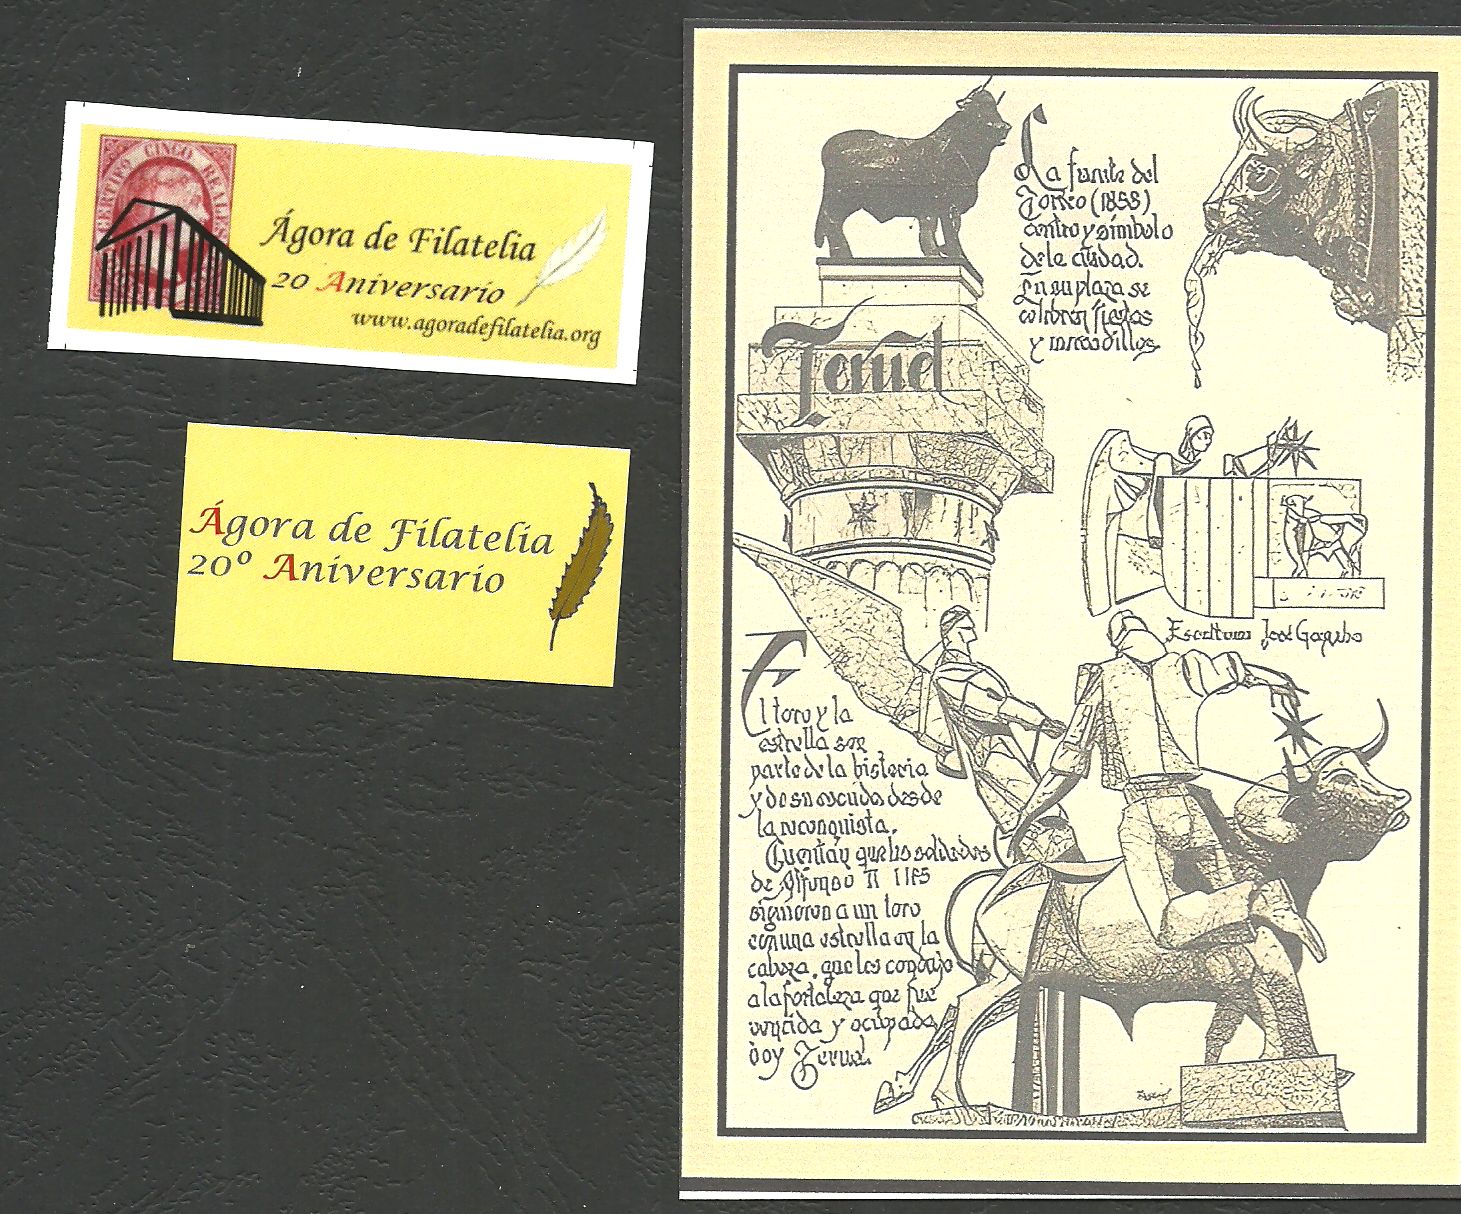 CERTIFDO CINCO REALES
Ágora de Filatelia
20 Aniversario
www.agoradefilatelia.org
Ágora de Filatelia
20º Aniversario
La fuente del
Torico (1858)
centro y símbolo
de la ciudad.
En su plaza se
celebran fiestas
y mercadillos
Teruel
Escultura José Gonzalvo
El toro y la
estrella son
parte de la historia
y de su escudo desde
la reconquista.
Cuentan que los soldados
de Alfonso II
siguieron a un toro
con una estrella en la
cabeza, que les condujo
a la fortaleza que fue
vencida y ocupada
hoy Teruel